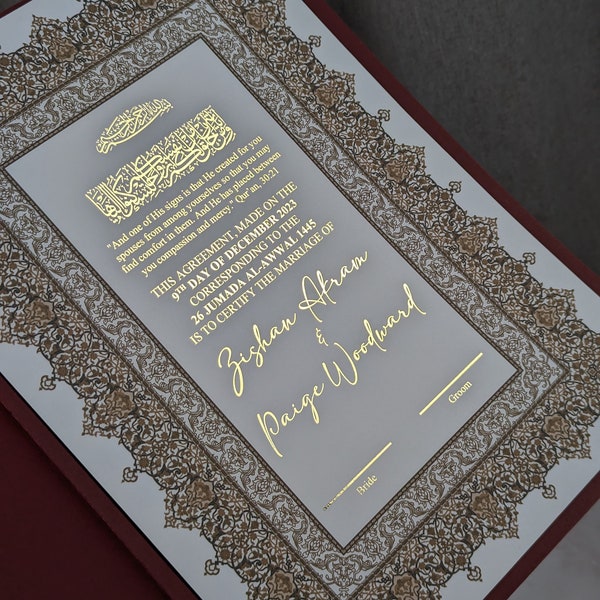 بسم الله الرحمن الرحيم
"And one of His signs is that He created for you
spouses from among yourselves so that you may
find comfort in them. And He has placed between
you compassion and mercy." Qur'an, 30:21
THIS AGREEMENT, MADE ON THE
9TH DAY OF DECEMBER 2023
CORRESPONDING TO THE
26 JUMADA AL-AWWAL 1445
IS TO CERTIFY THE MARRIAGE OF
Zishan Akram
&
Paige Woodward
Bride
Groom